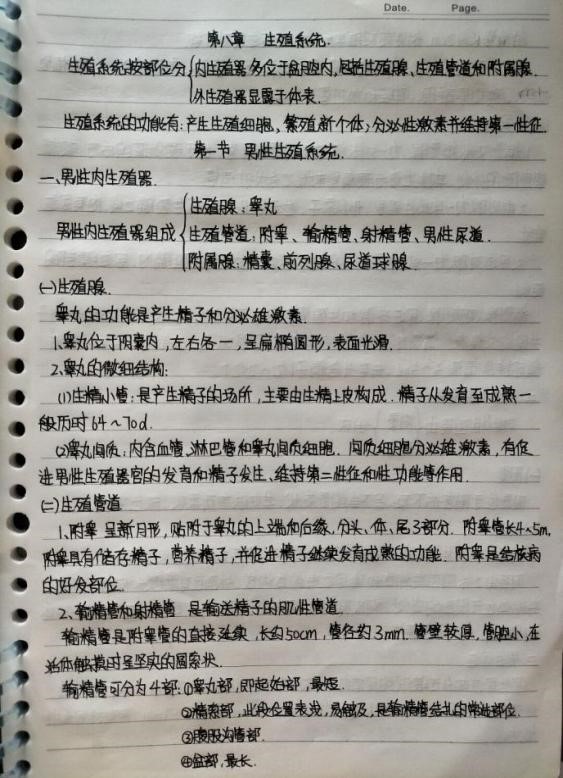 Date. Page.
第八章 生殖系统.
生殖系统按部位分{内生殖器多位于盆腔内,包括生殖腺、生殖管道和附属腺.
外生殖器显露于体表.
生殖系统的功能有:产生生殖细胞、繁殖新个体;分泌性激素并维持第一性征.
第一节 男性生殖系统.
一、男性内生殖器.
生殖腺:睾丸
男性内生殖器组成{生殖管道:附睾、输精管、射精管、男性尿道.
附属腺:精囊、前列腺、尿道球腺
(一)生殖腺.
睾丸的功能是产生精子和分泌雄激素.
1、睾丸位于阴囊内,左右各一,呈扁椭圆形,表面光滑.
2、睾丸的微细结构:
(1)生精小管:是产生精子的场所,主要由生精上皮构成.精子从发育至成熟一
般历时64~70d.
(2)睾丸间质:内含血管、淋巴管和睾丸间质细胞.间质细胞分泌雄激素,有促
进男性生殖器官的发育和精子发生、维持第二性征和性功能等作用.
(二)生殖管道
1、附睾 呈新月形,贴附于睾丸的上端和后缘,分头、体、尾3部分.附睾管长4~5m,
附睾具有储存精子,营养精子,并促进精子继续发育成熟的功能.附睾是结核病
的好发部位.
2、输精管和射精管 是输送精子的肌性管道.
输精管是附睾管的直接延续,长约50cm,管径约3mm.管壁较厚,管腔小,在
活体触摸时呈坚实的圆索状.
输精管可分为4部:①睾丸部,即起始部,最短.
②精索部,此段位置表浅,易触及,是输精管结扎的常选部位.
③腹股沟管部.
④盆部,最长.